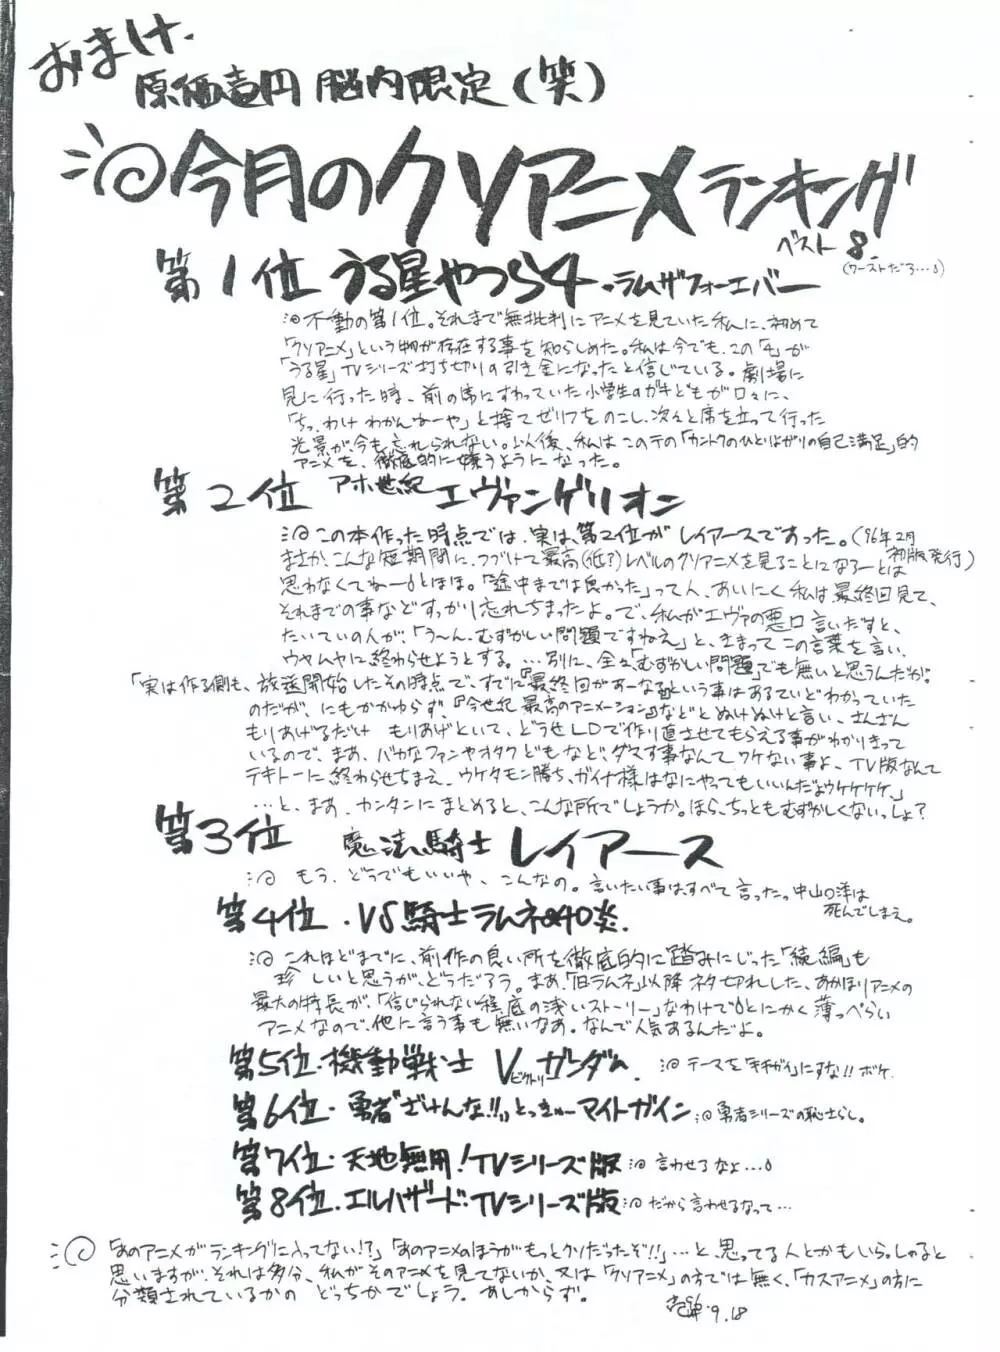 おまけ.
原価壱円 脳内限定(笑)
今月のクソアニメランキング
ベスト 8.
(ワーストだろ…)
第1位 うる星やつら4・ラムザフォーエバー
不動の第1位。それまで無批判にアニメを見ていた私に、初めて
「クソアニメ」という物が存在する事を知らしめた。私は今でも、この「4」が
「うる星」TVシリーズ打ち切りの引き金になったと信じている。劇場に
見に行った時、前の席にすわっていた小学生のガキどもが口々に、
「ちっ、わけ わかんねーや」と捨てゼリフをのこし、次々と席を立って行った
光景が、今も忘れられない。以後、私はこのテの「カントクのひとりよがりの自己満足」的
アニメを、徹底的に嫌うようになった。
第2位 アホ世紀 エヴァンゲリオン
この本作った時点では、実は、第2位が レイアースであった。('96年2月
初版発行)
まさか、こんな短期間に、つづけて最高(低?)レベルのクソアニメを見ることになろーとは
思わなくてねーとほほ。「途中までは良かった」ってん、あいにく私は最終回見て、
それまでの事などすっかり忘れちまったよ。で、私がエヴァの悪口言いだすと、
たいていの人が、「う〜ん、むずかしい問題ですねえ」と、きまって この言葉を言い、
ウヤムヤに終わらせようとする。…別に、全々「むずかしい問題」でも無いと思うんだが。
「実は作る側も、放送開始したその時点で、すでに『最終回があーなる』という事はあるていどわかっていた
のだが、にもかかわらず、『今世紀 最高のアニメーション』などとぬけぬけと言い、さんざん
もりあげるだけ もりあげといて、どうせLDで作り直させてもらえる事がわかりきって
いるので、まあ、バカなファンやオタクどもなど、ダマす事なんてワケない事よ、TV版なんて
テキトーに終わらせちまえ、ウケタモン勝ち、ガイナ様はなにやってもいいんだようケケケケ。」
…と、まあ、カンタンにまとめると、こんな所でしょうか。ほら、ちっともむずかしくないっしょ?
第3位 魔法騎士 レイアース
もう、どうでもいいや、こんなの。言いたい事はすべて言った。中山口洋は
死んでしまえ。
第4位・VS騎士ラムネ&40炎.
これほどまでに、前作の良い所を徹底的に踏みにじった「続編」も
珍しいと思うが、どうだろう。まあ、「旧ラムネ」以降ネタ切れした、あかほりアニメの
最大の特長が、「信じられない程、底の浅いストーリー」なわけで とにかく薄っぺらい
アニメなので、他に言う事も無いなあ。なんで人気あるんだよ。
第5位・機動戦士 Vガンダム.
ビクトリー
テーマを「キチガイ」にすな!!ボケ.
第6位・勇者"ざけんな!!"とっきゅーマイトガイン 勇者シリーズの恥さらし。
第7位・天地無用!TVシリーズ版 言わせるなよ…
第8位・エルハザード・TVシリーズ版 だから言わせるなって…
「あのアニメがランキングに入ってない!?」「あのアニメのほうがもっとクソだったぞ!!」…と、思ってる人とかもいらっしゃると
思いますが、それは多分、私がそのアニメを見てないか、又は「クソアニメ」の方では無く、「カスアニメ」の方に
分類されているかの どっちかでしょう。あしからず。
9.18